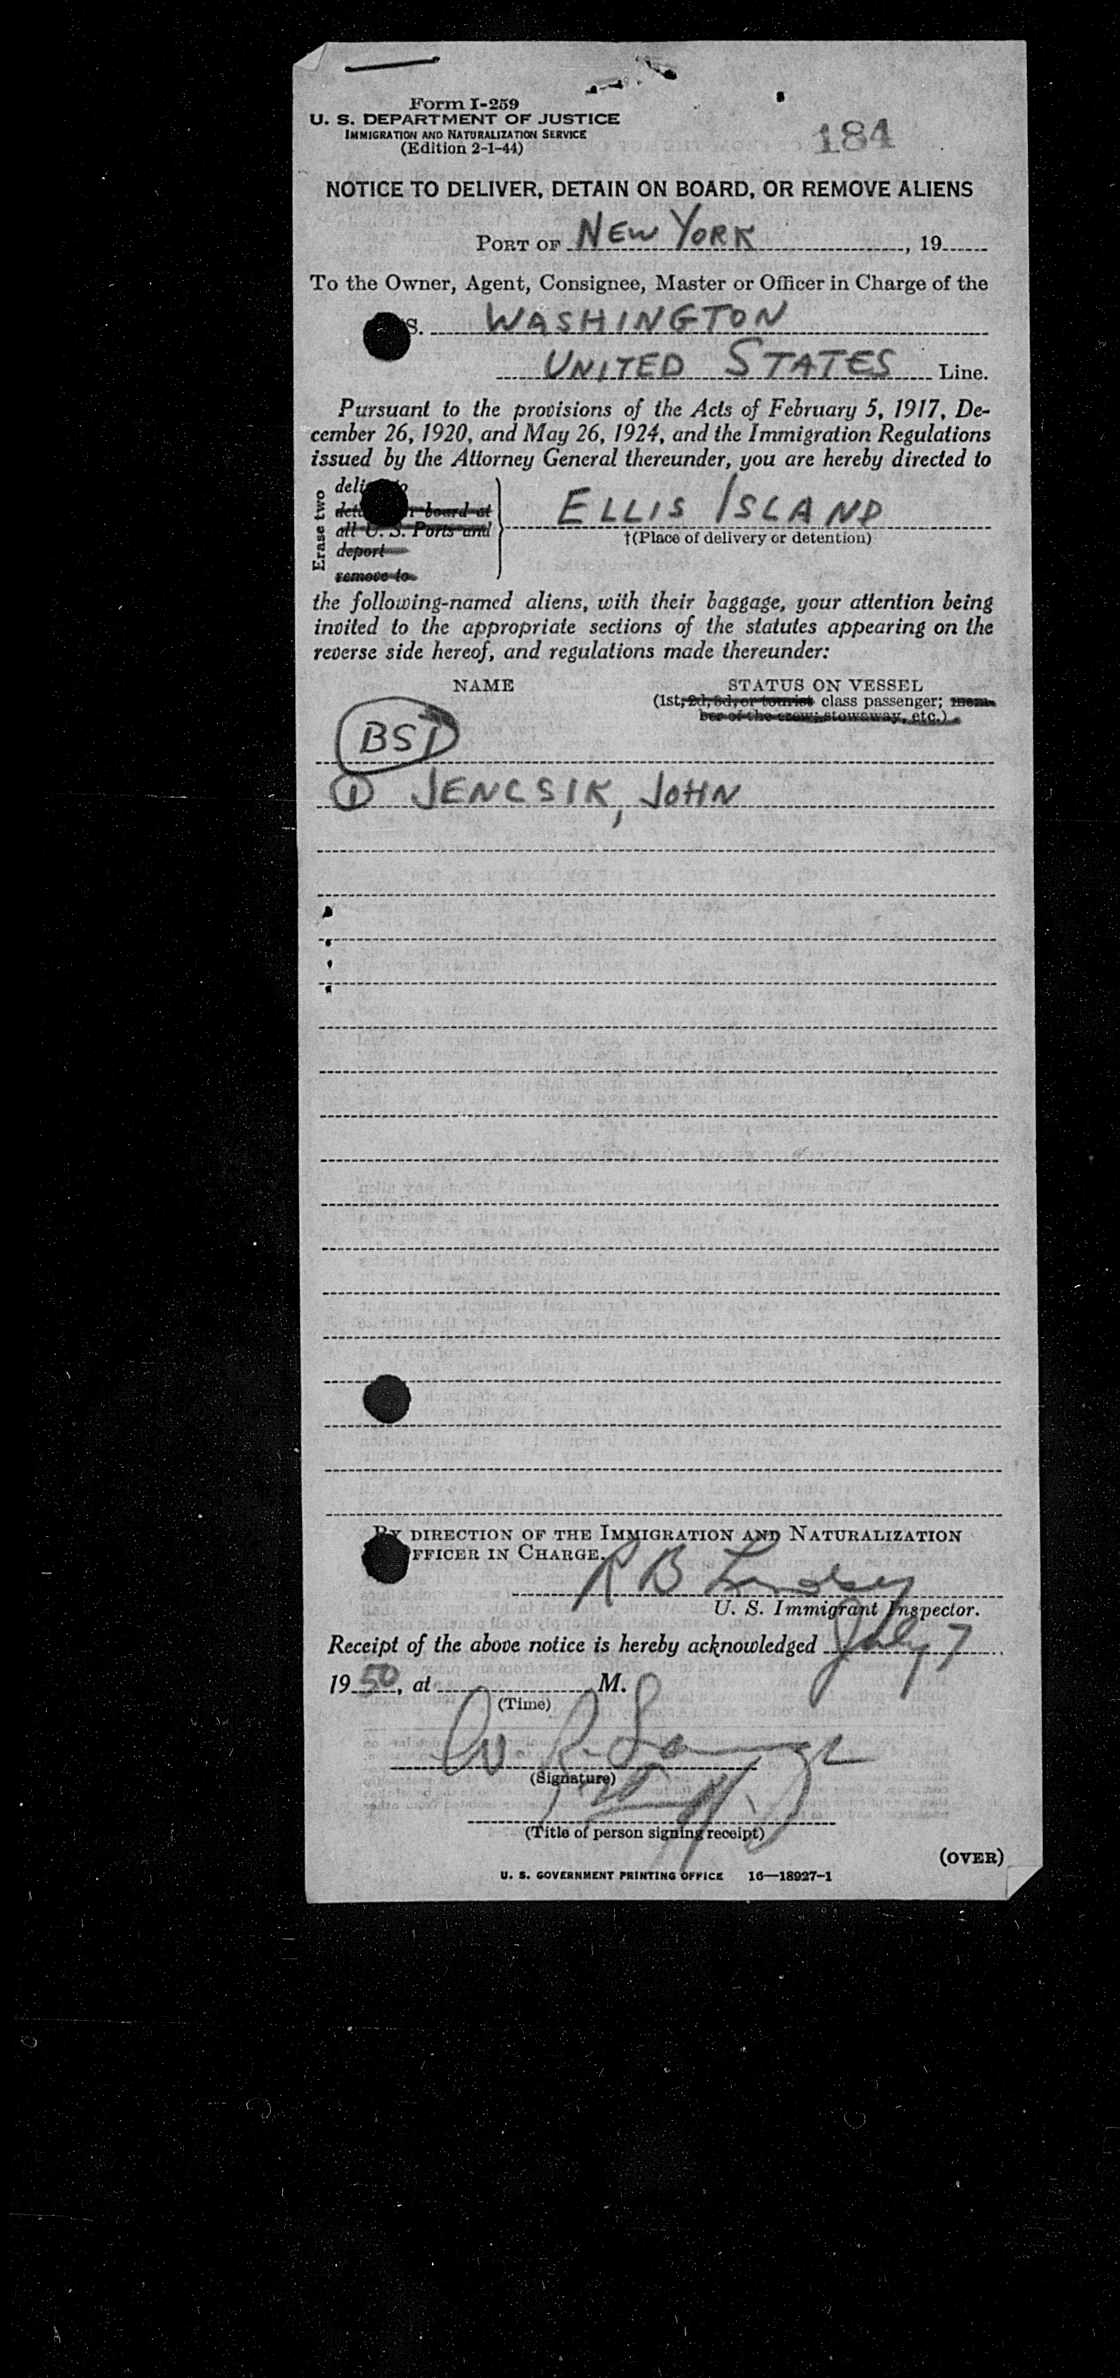 Form I-259
U. S. DEPARTMENT OF JUSTICE
IMMIGRATION AND NATURALIZATION SERVICE
(Edition 2-1-44)
184
NOTICE TO DELIVER, DETAIN ON BOARD, OR REMOVE ALIENS
PORT OF NEW YORK, 19
To the Owner, Agent, Consignee, Master or Officer in Charge of the
S. WASHINGTON
UNITED STATES Line.
Pursuant to the provisions of the Acts of February 5, 1917, De-
cember 26, 1920, and May 26, 1924, and the Immigration Regulations
issued by the Attorney General thereunder, you are hereby directed to
Erase two
board at
all U. S. Ports and
deport
remove to
ELLIS ISLAND
†(Place of delivery or detention)
the following-named aliens, with their baggage, your attention being
invited to the appropriate sections of the statutes appearing on the
reverse side hereof, and regulations made thereunder:
NAME STATUS ON VESSEL
(1st, 2d, 3d, or tourist class passenger; mem-
ber of the crew; stowaway, etc.)
BSI
1 JENCSIK, JOHN
BY DIRECTION OF THE IMMIGRATION AND NATURALIZATION
FFICER IN CHARGE.
R B Lindsey
U. S. Immigrant Inspector.
Receipt of the above notice is hereby acknowledged July 7
19 50, at M.
(Time)
W. R.
(Signature)
(Title of person signing receipt)
(OVER)
U. S. GOVERNMENT PRINTING OFFICE 16—18927-1